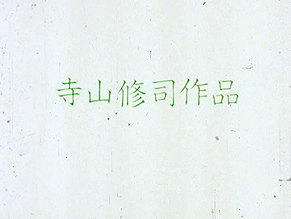 寺山修司作品